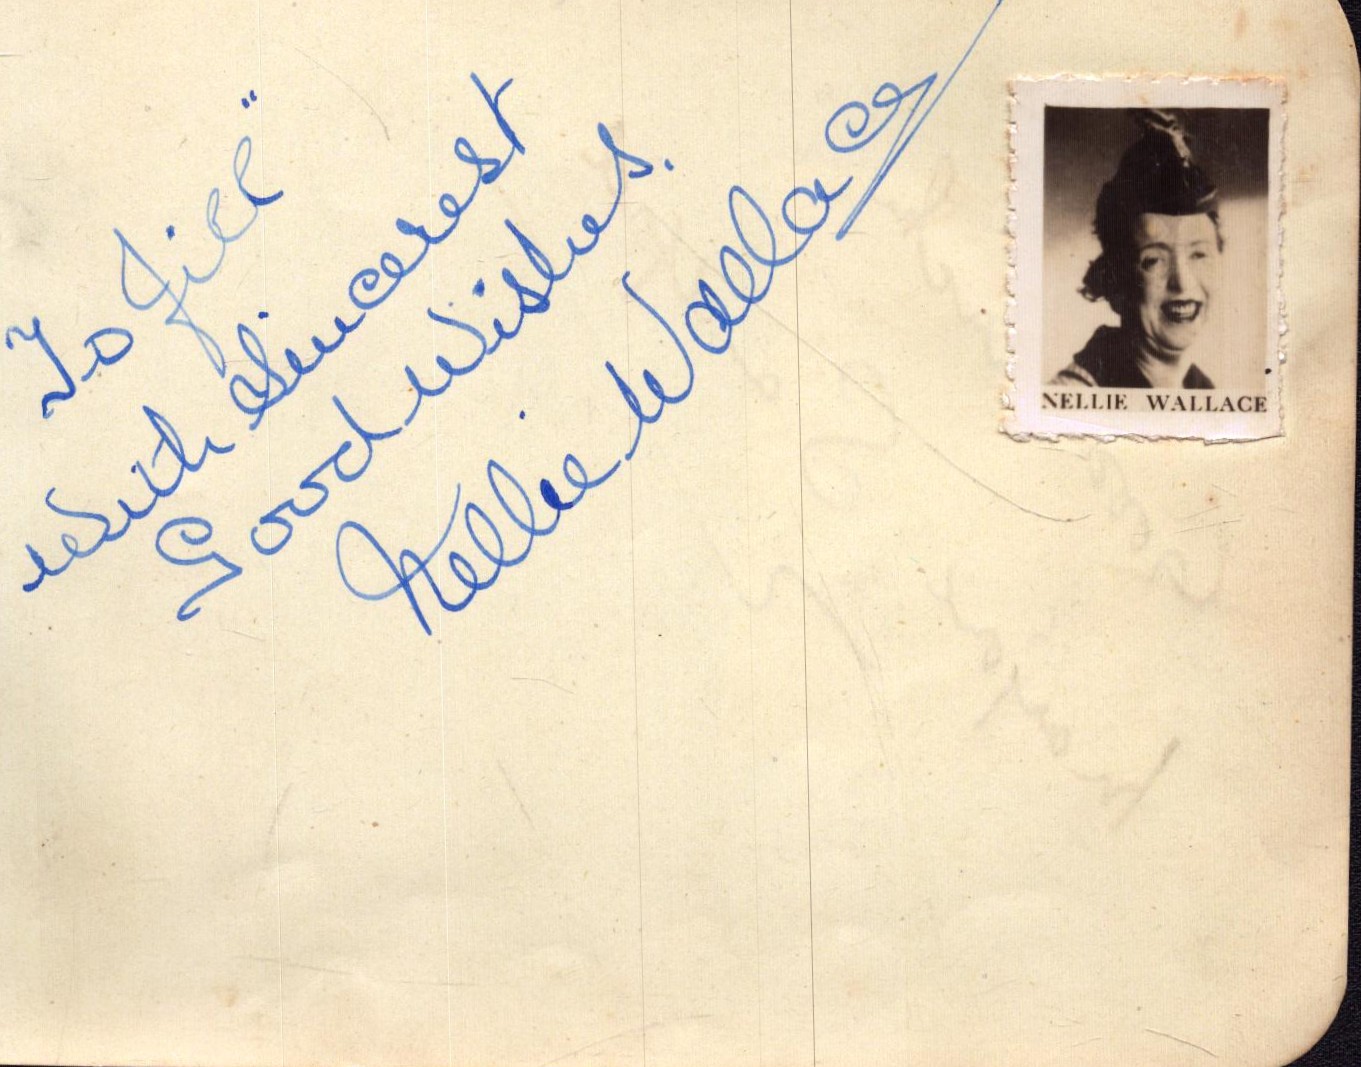 To Jill"
With Sincerest
Good Wishes.
Nellie Wallace
NELLIE WALLACE